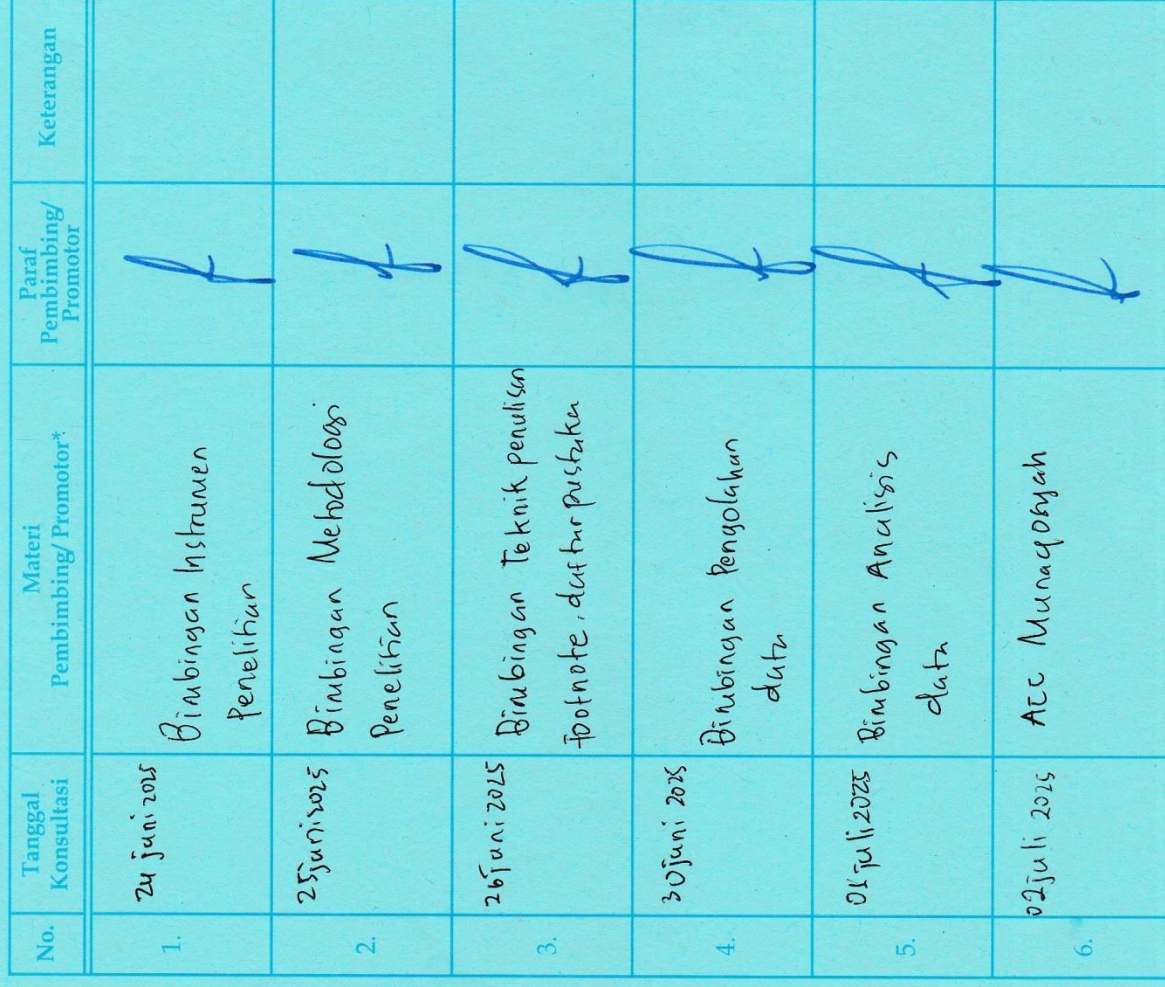 No.
Tanggal
Konsultasi
Materi
Pembimbing/ Promotor*
Paraf
Pembimbing/
Promotor
Keterangan
1.
24 juni 2025
Bimbingan Instrumen
Penelitian
2.
25 juni 2025
Bimbingan Metodologi
Penelitian
3.
26 juni 2025
Bimbingan Teknik penulisan
footnote, daftar pustaka
4.
30 juni 2025
Bimbingan Pengolahan
data
5.
01 juli 2025
Bimbingan Analisis
data
6.
02 juli 2025
ACC Munaqosyah